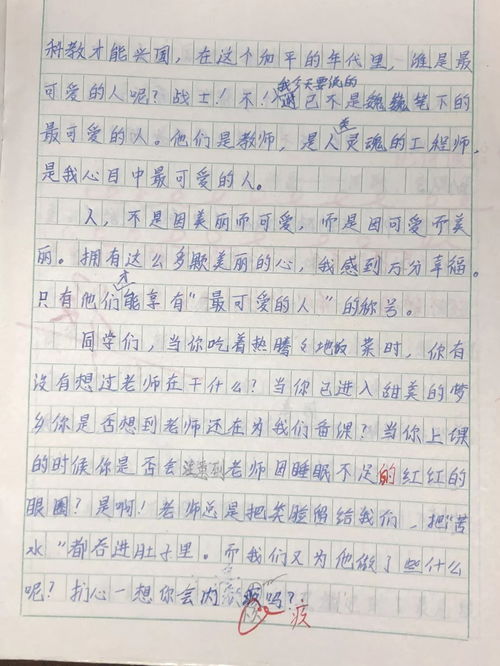 科教才能兴国，在这个和平的年代里，谁是最
可爱的人呢？战士！不！我今天要说的已不是魏巍笔下的
最可爱的人。他们是教师，是人类灵魂的工程师，
是我心目中最可爱的人。
人，不是因美丽而可爱，而是因可爱而美
丽。拥有这么多颗美丽的心，我感到万分幸福。
只有他们才能享有“最可爱的人”的称号。
同学们，当你吃着热腾々地饭菜时，你有
没有想过老师在干什么？当你已进入甜美的梦
乡你是否想到老师还在为我们备课？当你上课
的时候你是否会注意到老师因睡眠不足的红红的
眼圈？是啊！老师总是把笑脸留给我们，把“苦
水”都吞进肚子里。而我们又为他做了些什么
呢？扪心一想你会内疚吗？
疚